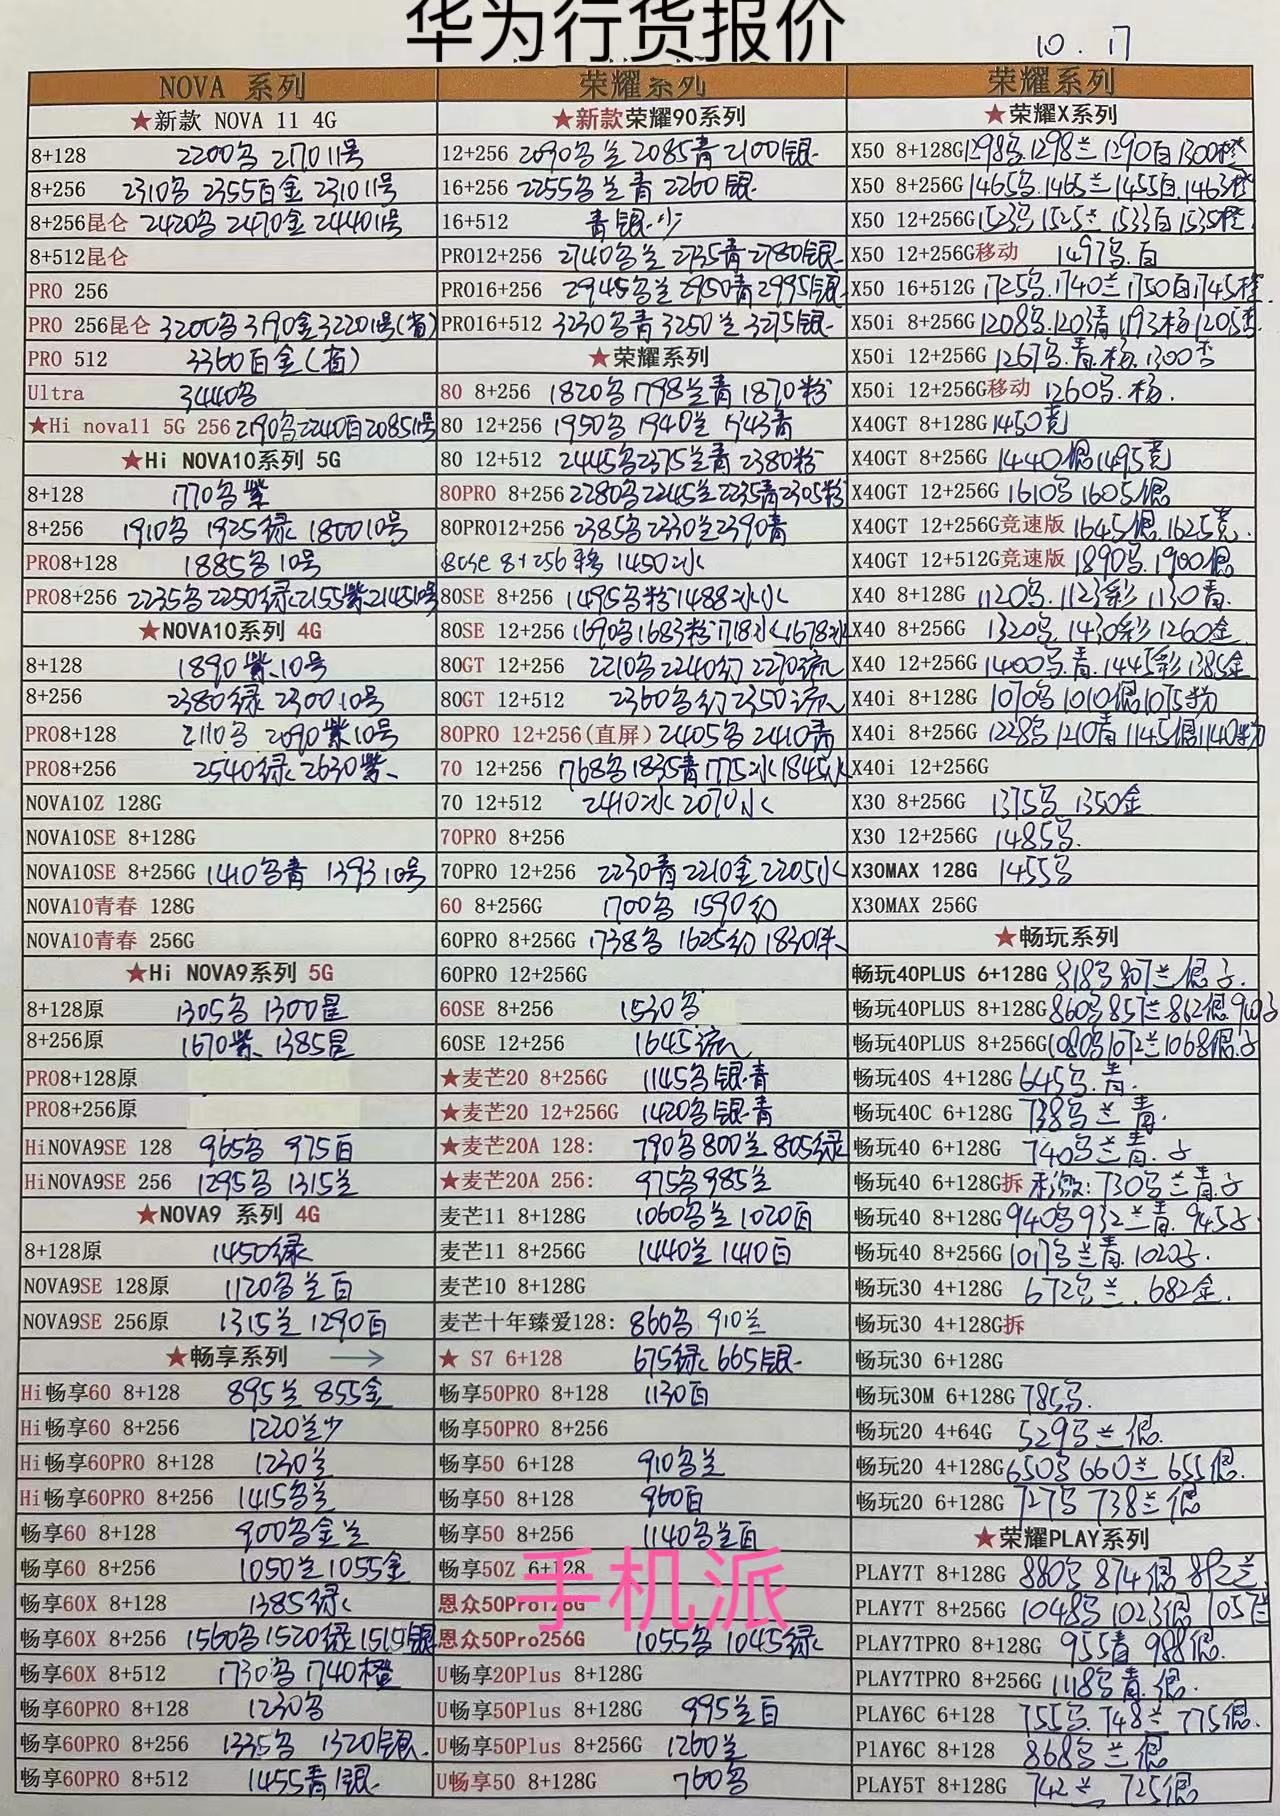 华为行货报价
10.17
NOVA 系列
★新款 NOVA 11 4G
8+128 2200乌 2170 11号
8+256 2310乌 2355百金 2310 11号
8+256昆仑 2420乌 2470金 2440 11号
8+512昆仑
PRO 256
PRO 256昆仑 3200乌 3190金 3220 11号(省)
PRO 512 3360百金(省)
Ultra 3440乌
★Hi nova11 5G 256 2190乌 2240百 2085 11号
★Hi NOVA10系列 5G
8+128 1770乌紫
8+256 1910乌 1925绿 1800 10号
PRO8+128 1885乌 10号
PRO8+256 2235乌 2250绿 2155紫 2145 10号
★NOVA10系列 4G
8+128 1890紫.10号
8+256 2380绿 2300 10号
PRO8+128 2110乌 2090紫 10号
PRO8+256 2540绿 2630紫
NOVA10Z 128G
NOVA10SE 8+128G
NOVA10SE 8+256G 1410乌青 1393 10号
NOVA10青春 128G
NOVA10青春 256G
★Hi NOVA9系列 5G
8+128原 1305乌 1300星
8+256原 1670紫 1385星
PRO8+128原
PRO8+256原
HiNOVA9SE 128 965乌 975百
HiNOVA9SE 256 1295乌 1315兰
★NOVA9 系列 4G
8+128原 1450绿
NOVA9SE 128原 1120乌兰百
NOVA9SE 256原 1315兰 1290百
★畅享系列 →
Hi畅享60 8+128 895兰 855金
Hi畅享60 8+256 1220兰少
Hi畅享60PRO 8+128 1230兰
Hi畅享60PRO 8+256 1415乌兰
畅享60 8+128 900乌金兰
畅享60 8+256 1050兰 1055金
畅享60X 8+128 1385绿
畅享60X 8+256 1560乌 1520绿 1515银
畅享60X 8+512 1730乌 1740橙
畅享60PRO 8+128 1230乌
畅享60PRO 8+256 1335乌 1320银
畅享60PRO 8+512 1455青银
荣耀系列
★新款荣耀90系列
12+256 2090乌兰 2085青 2100银
16+256 2255乌兰青 2260银
16+512 青银少
PRO12+256 2740乌兰 2735青 2780银
PRO16+256 2945乌兰 2950青 2995银
PRO16+512 3230乌青 3250兰 3275银
★荣耀系列
80 8+256 1820乌 1798兰青 1870粉
80 12+256 1950乌 1940兰 1943青
80 12+512 2445乌 2375兰青 2380粉
80PRO 8+256 2280乌 2245兰 2235青 2305粉
80PRO12+256 2385乌 2330兰 2390青
80se 8+256 移 1450冰
80SE 8+256 1495乌粉 1488冰水
80SE 12+256 1690乌 1683粉 1718水 1678冰
80GT 12+256 2210乌 2240幻 2270流
80GT 12+512 2360乌幻 2350流
80PRO 12+256(直屏) 2405乌 2410青
70 12+256 1768乌 1835青 1775冰 1845水
70 12+512 2410冰 2070水
70PRO 8+256
70PRO 12+256 2230青 2210金 2205水
60 8+256G 1700乌 1590幻
60PRO 8+256G 1738乌 1625幻 1830绿
60PRO 12+256G
60SE 8+256 1530乌
60SE 12+256 1645流
★麦芒20 8+256G 1145乌银.青
★麦芒20 12+256G 1420乌银.青
★麦芒20A 128: 790乌 800兰 805绿
★麦芒20A 256: 975乌 985兰
麦芒11 8+128G 1060乌兰 1020百
麦芒11 8+256G 1440兰 1410百
麦芒10 8+128G
麦芒十年臻爱128: 860乌 910兰
★ S7 6+128 675绿 665银
畅享50PRO 8+128 1130百
畅享50PRO 8+256
畅享50 6+128 910乌兰
畅享50 8+128 960百
畅享50 8+256 1140乌兰百
畅享50Z 6+128
恩众50Pro128G
恩众50Pro256G 1055乌 1045绿
U畅享20Plus 8+128G
U畅享50Plus 8+128G 995兰百
U畅享50Plus 8+256G 1260兰
U畅享50 8+128G 760乌
手机派
荣耀系列
★荣耀X系列
X50 8+128G 1298乌.1298兰 1290百 1300橙
X50 8+256G 1465乌.1465兰 1455百.1463橙
X50 12+256G 1523乌 1525兰 1533百 1535橙
X50 12+256G移动 1497乌.百
X50 16+512G 1725乌.1740兰 1750百 1745橙
X50i 8+256G 1208乌.1203青 1193杨 1205杏
X50i 12+256G 1267乌.青.杨.1300杏
X50i 12+256G移动 1260乌.杨.
X40GT 8+128G 1450竞
X40GT 8+256G 1440银 1495竞
X40GT 12+256G 1610乌 1605银
X40GT 12+256G竞速版 1645银 1625竞.
X40GT 12+512G竞速版 1890乌.1900银
X40 8+128G 1120乌.1123彩 1130青.
X40 8+256G 1320乌.1430彩 1260金
X40 12+256G 1400乌.青.1445彩 1385金
X40i 8+128G 1070乌 1010银 1075粉
X40i 8+256G 1228乌 1210青 1145银 1140粉
X40i 12+256G
X30 8+256G 1375乌 1350金
X30 12+256G 1485乌.
X30MAX 128G 1455乌
X30MAX 256G
★畅玩系列
畅玩40PLUS 6+128G 818乌 807兰 银 子.
畅玩40PLUS 8+128G 860乌 857兰 862银 940子
畅玩40PLUS 8+256G 1080乌 1072兰 1068银.子
畅玩40S 4+128G 645乌.青.
畅玩40C 6+128G 738乌 兰 青.
畅玩40 6+128G 740乌 兰 青.子
畅玩40 6+128G拆 未激: 730乌 兰 青.子
畅玩40 8+128G 940乌 932兰 青.945子
畅玩40 8+256G 1017乌 兰 青 1020子.
畅玩30 4+128G 672乌 兰.682金.
畅玩30 4+128G拆
畅玩30 6+128G
畅玩30M 6+128G 785乌.
畅玩20 4+64G 529乌 兰 银.
畅玩20 4+128G 650乌 660兰 655银.
畅玩20 6+128G 727乌 738兰 银
★荣耀PLAY系列
PLAY7T 8+128G 880乌 874银 892兰
PLAY7T 8+256G 1048乌 1023银 1057兰
PLAY7TPRO 8+128G 955青 988银.
PLAY7TPRO 8+256G 1118乌 青.银.
PLAY6C 6+128 755乌.748兰 775银.
PlAY6C 8+128 868乌 兰 银
PLAY5T 8+128G 742兰 725银